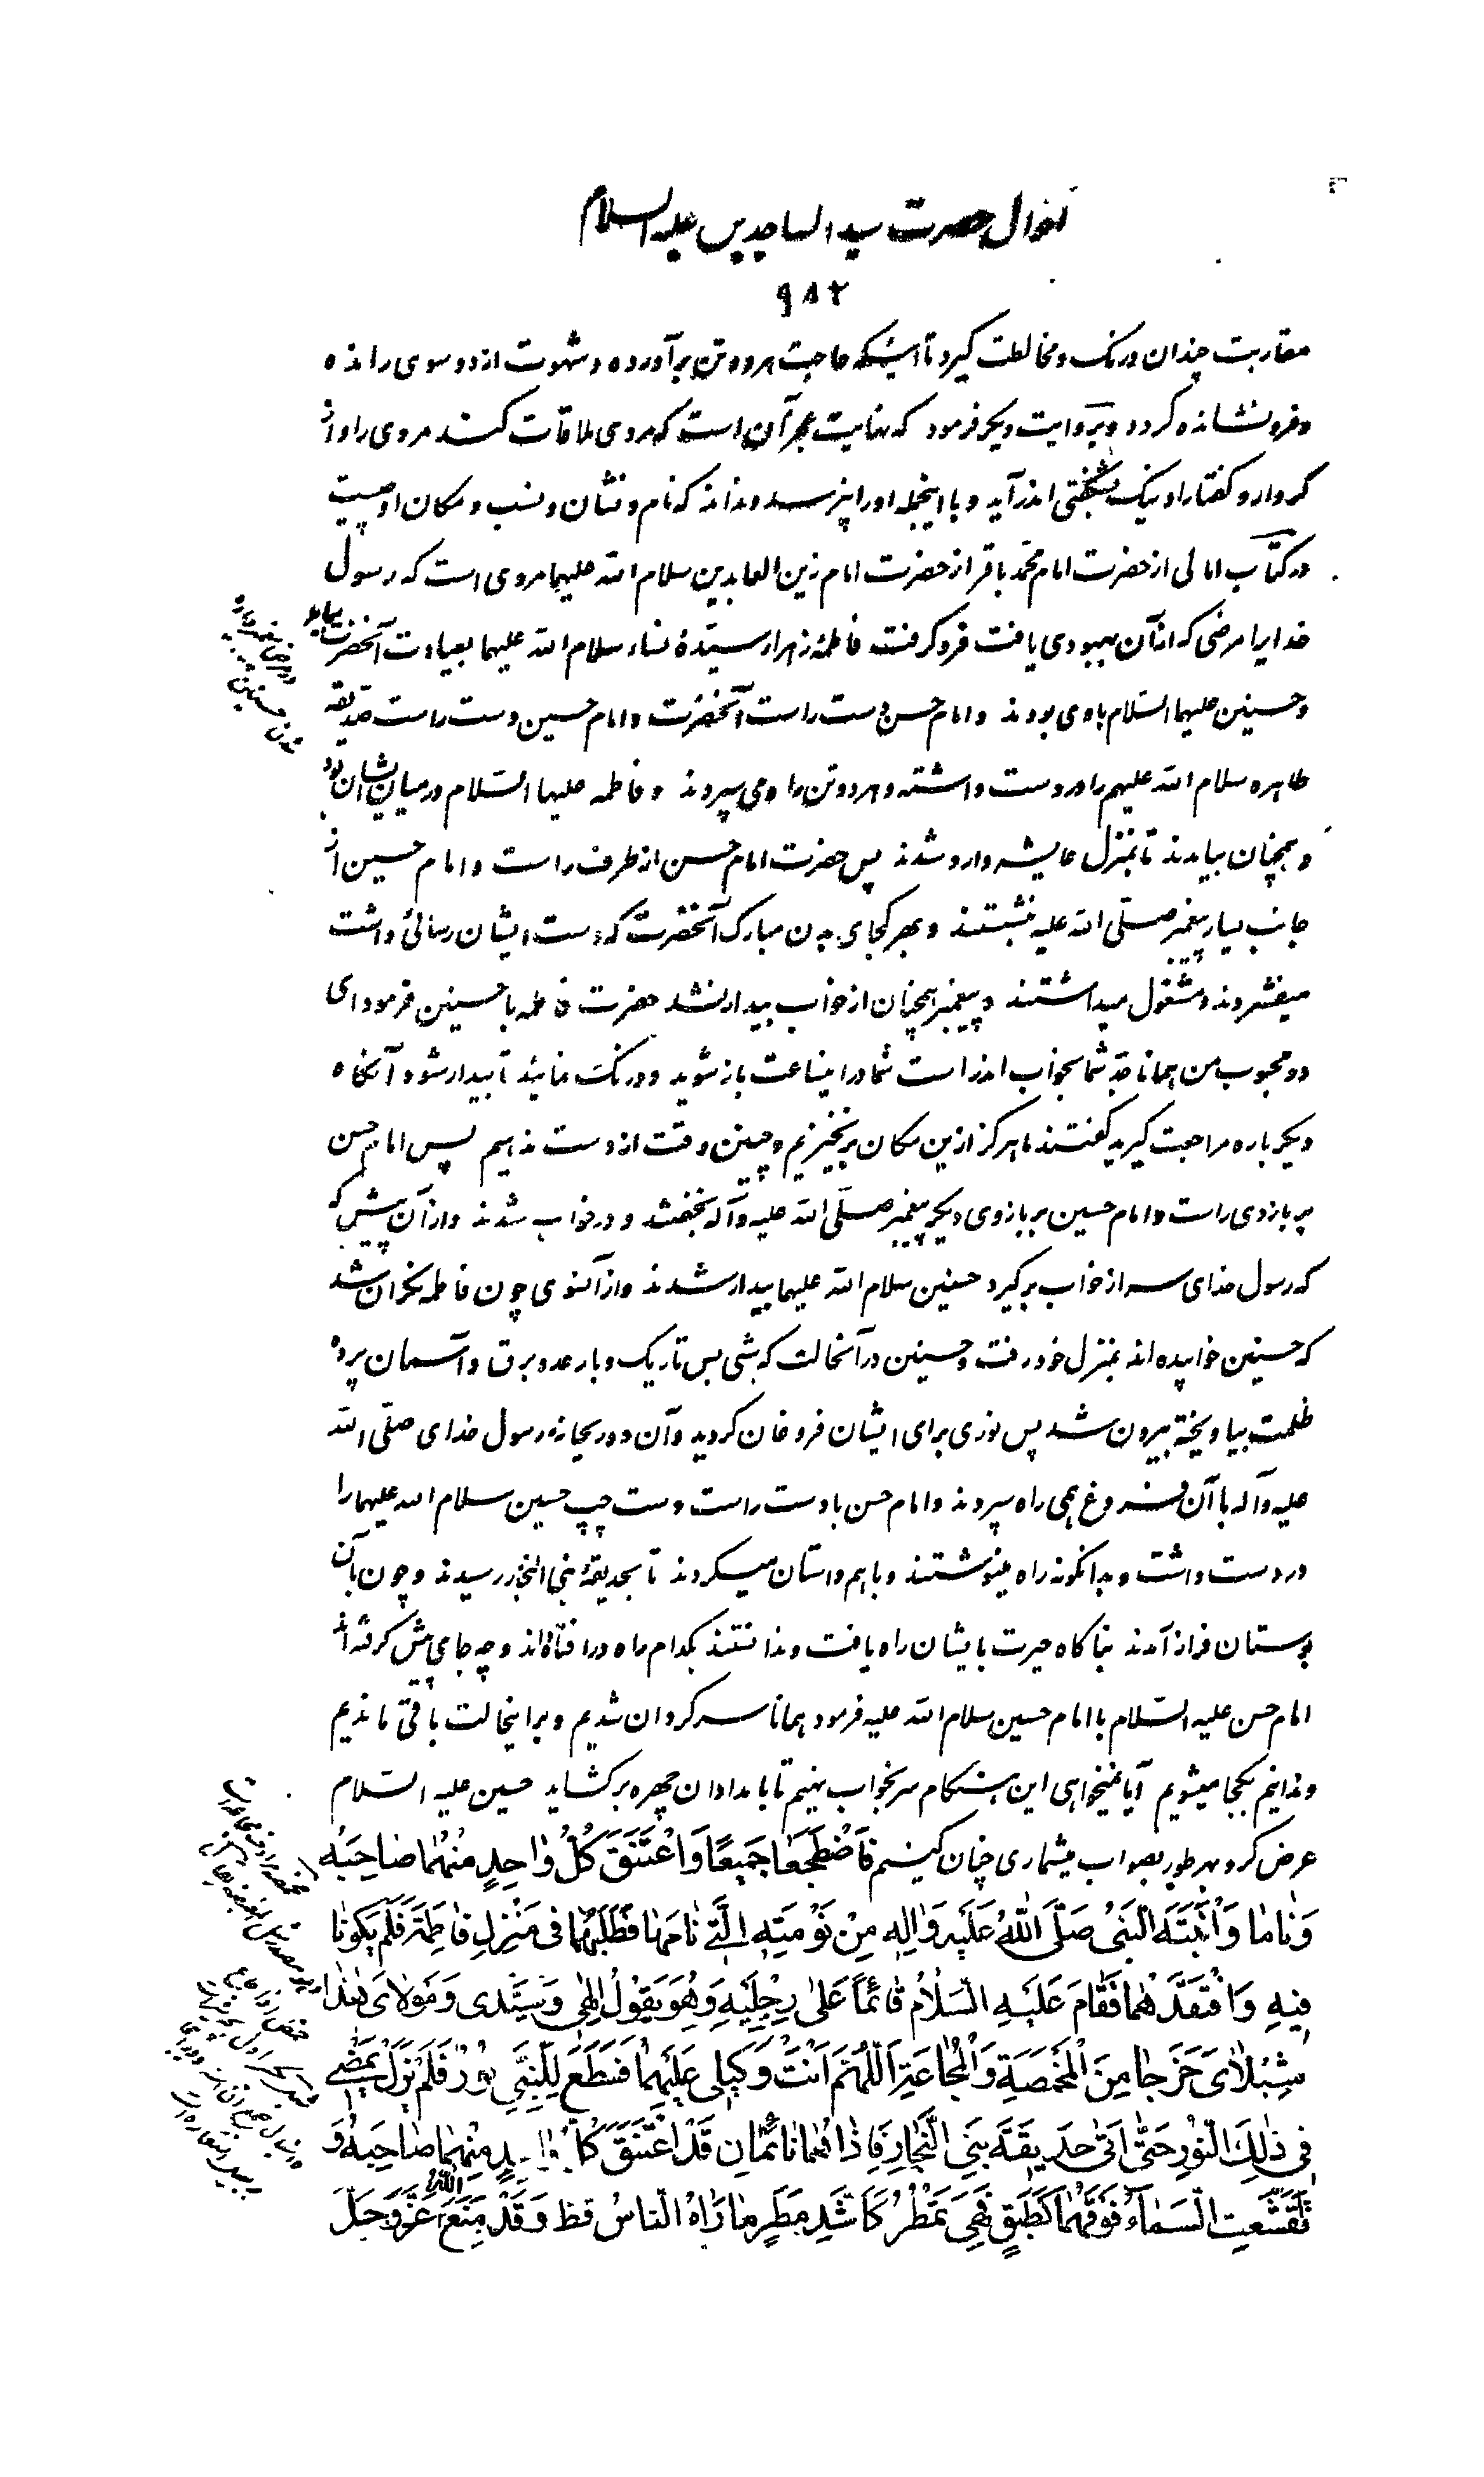 احوال حضرت سید الساجدین علیه السلام
۹۸۲
مقاربت چندان درنک و مخالطت گیرد تا اینکه حاجت هر دو تن برآورده و شهوت از دو سوی رانده
و فرو نشانده گردد و بروایت دیگر فرمود که نهایت عجز آن است که مردی ملاقات کند مردی را و از
کردار و گفتار او نیک بشگفتی اندر آید و با اینجمله او را نپرسد و نداند که نام و نشان و نسب و مکان او چیست
در کتاب امالی از حضرت امام محمد باقر از حضرت امام زین العابدین سلام الله علیهما مروی است که رسول
خدایرا مرضی که از آن بهبودی یافت فرو گرفت فاطمهٔ زهرا سیّدهٔ نساء سلام الله علیها بعیادت آنحضرت بیامد
و حسنین علیهما السّلام با وی بودند و امام حسن دست راست آنحضرت و امام حسین دست راست صدیقه
طاهره سلام الله علیهم را در دست داشته و هر دو تن راه می سپردند و فاطمه علیها السّلام در میان ایشان بود
و همچنان بیامدند تا بمنزل عایشه وارد شدند پس حضرت امام حسن از طرف راست و امام حسین از
جانب یسار پیغمبر صلّی الله علیه بنشستند و بهر کجای بدن مبارک آنحضرت که دست ایشان رسائی داشت
میفشردند و مشغول میداشتند و پیغمبر همچنان از خواب بیدار نشد حضرت فاطمه با حسنین فرمود ای
دو محبوب من همانا جدّ شما بخواب اندر است شما در اینساعت باز شوید و درنگ نمائید تا بیدار شود آنگاه
دیگر باره مراجعت گیرید گفتند ما هرگز ازین مکان برنخیزیم و چنین وقت از دست ندهیم پس امام حسن
بر بازوی راست و امام حسین بر بازوی دیگر پیغمبر صلّی الله علیه و آله بخفتند و در خواب شدند و از آن پیش که
که رسول خدای سر از خواب برگیرد حسنین سلام الله علیهما بیدار شدند و از آنسوی چون فاطمه نگران شد
که حسنین خوابیده اند بمنزل خود رفت و حسنین در آنحالت که شبی بس تاریک و با رعد و برق و آسمان پرده
ظلمت بیاویخته بیرون شدند پس نوری برای ایشان فروغان گردید و آن دو ریحانه رسول خدای صلّی الله
علیه و آله با آن فروغ همی راه سپردند و امام حسن با دست راست دست چپ حسین سلام الله علیهما را
در دست داشت و بدانگونه راه مینوشتند و با هم داستان میکردند تا بحدیقهٔ بنی النجار رسیدند و چون بآن
بوستان فراز آمدند بناگاه حیرت بایشان راه یافت و ندانستند بکدام راه در افتاده اند و چه جای پیش گرفته اند
امام حسن علیه السّلام با امام حسین سلام الله علیه فرمود همانا سرگردان شدیم و بر اینحالت باقی ماندیم
و ندانیم بکجا میشویم آیا نمیخواهی این هنگام سر بخواب نهیم تا بامدادان چهره برگشاید حسین علیه السّلام
عرض کرد بهر طور بصواب میشماری چنان کنیم فَاضْطَجَعا جَمیعًا وَاعْتَنَقَ كُلُّ واحِدٍ مِنْهُما صاحِبَهُ
وَناما وَانْتَبَهَ النَّبِیُّ صَلَّى اللهُ عَلَیْهِ وَالِهِ مِنْ نَوْمَتِهِ الَّتی نامَها فَطَلَبَهُما فی مَنْزِلِ فاطِمَةَ فَلَمْ یَكُونا
فیهِ وَافْتَقَدَهُما فَقامَ عَلَیْهِ السَّلامُ قائِماً عَلى رِجْلَیْهِ وَهُوَ یَقُولُ اِلهی وَسَیِّدی وَمَولایَ هذانِ
شِبْلایَ خَرَجا مِنَ الْمَخْمَصَةِ وَالْمَجاعَةِ اَللّهُمَّ اَنْتَ وَكیلی عَلَیْهِما فَسَطَعَ لِلنَّبِیِّ نُورٌ فَلَمْ یَزَلْ یَمْضی
فی ذلِكَ النُّورِ حَتّى اَتى حَدیقَةَ بَنِی النَّجّارِ فَاِذا هُما نائِمانِ قَدِ اعْتَنَقَ كُلُّ واحِدٍ مِنْهُما صاحِبَهُ وَ
تَقَشَّعَتِ السَّماءُ فَوْقَهُما كَطَبَقٍ فَهِیَ تَمْطُرُ كَاَشَدِّ مَطَرٍ ما رَاهُ النّاسُ قَطُّ وَقَدْ مَنَعَ اللهُ عَزَّوَجَلَّ